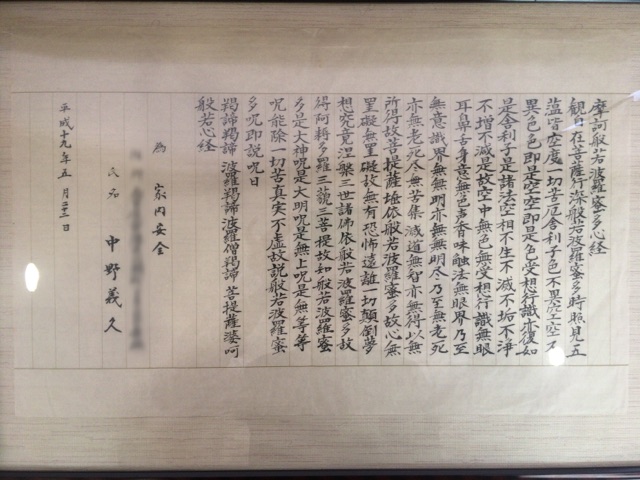 摩訶般若波羅蜜多心経
観自在菩薩行深般若波羅蜜多時照見五
蘊皆空度一切苦厄舎利子色不異空空不
異色色即是空空即是色受想行識亦復如
是舎利子是諸法空相不生不滅不垢不浄
不増不減是故空中無色無受想行識無眼
耳鼻舌身意無色声香味触法無眼界乃至
無意識界無無明亦無無明尽乃至無老死
亦無老死尽無苦集滅道無智亦無得以無
所得故菩提薩埵依般若波羅蜜多故心無
罣礙無罣礙故無有恐怖遠離一切顛倒夢
想究竟涅槃三世諸佛依般若波羅蜜多故
得阿耨多羅三藐三菩提故知般若波羅蜜
多是大神呪是大明呪是無上呪是無等等
呪能除一切苦真実不虚故説般若波羅蜜
多呪即説呪曰
羯諦羯諦 波羅羯諦 波羅僧羯諦 菩提薩婆呵
般若心経
為 家内安全
氏名 中野義久
平成十九年五月二十三日